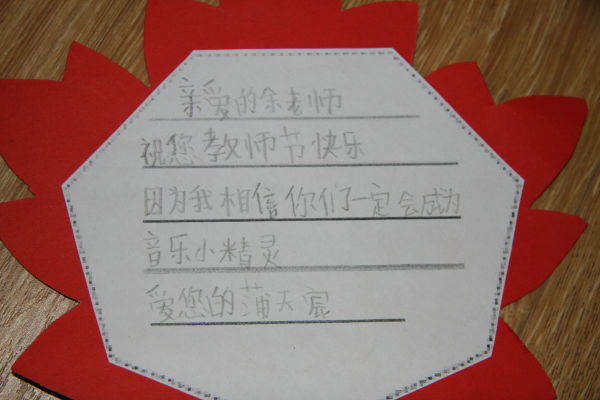 亲爱的余老师
祝您教师节快乐
因为我相信你们一定会成为
音乐小精灵
爱您的蒲天宸